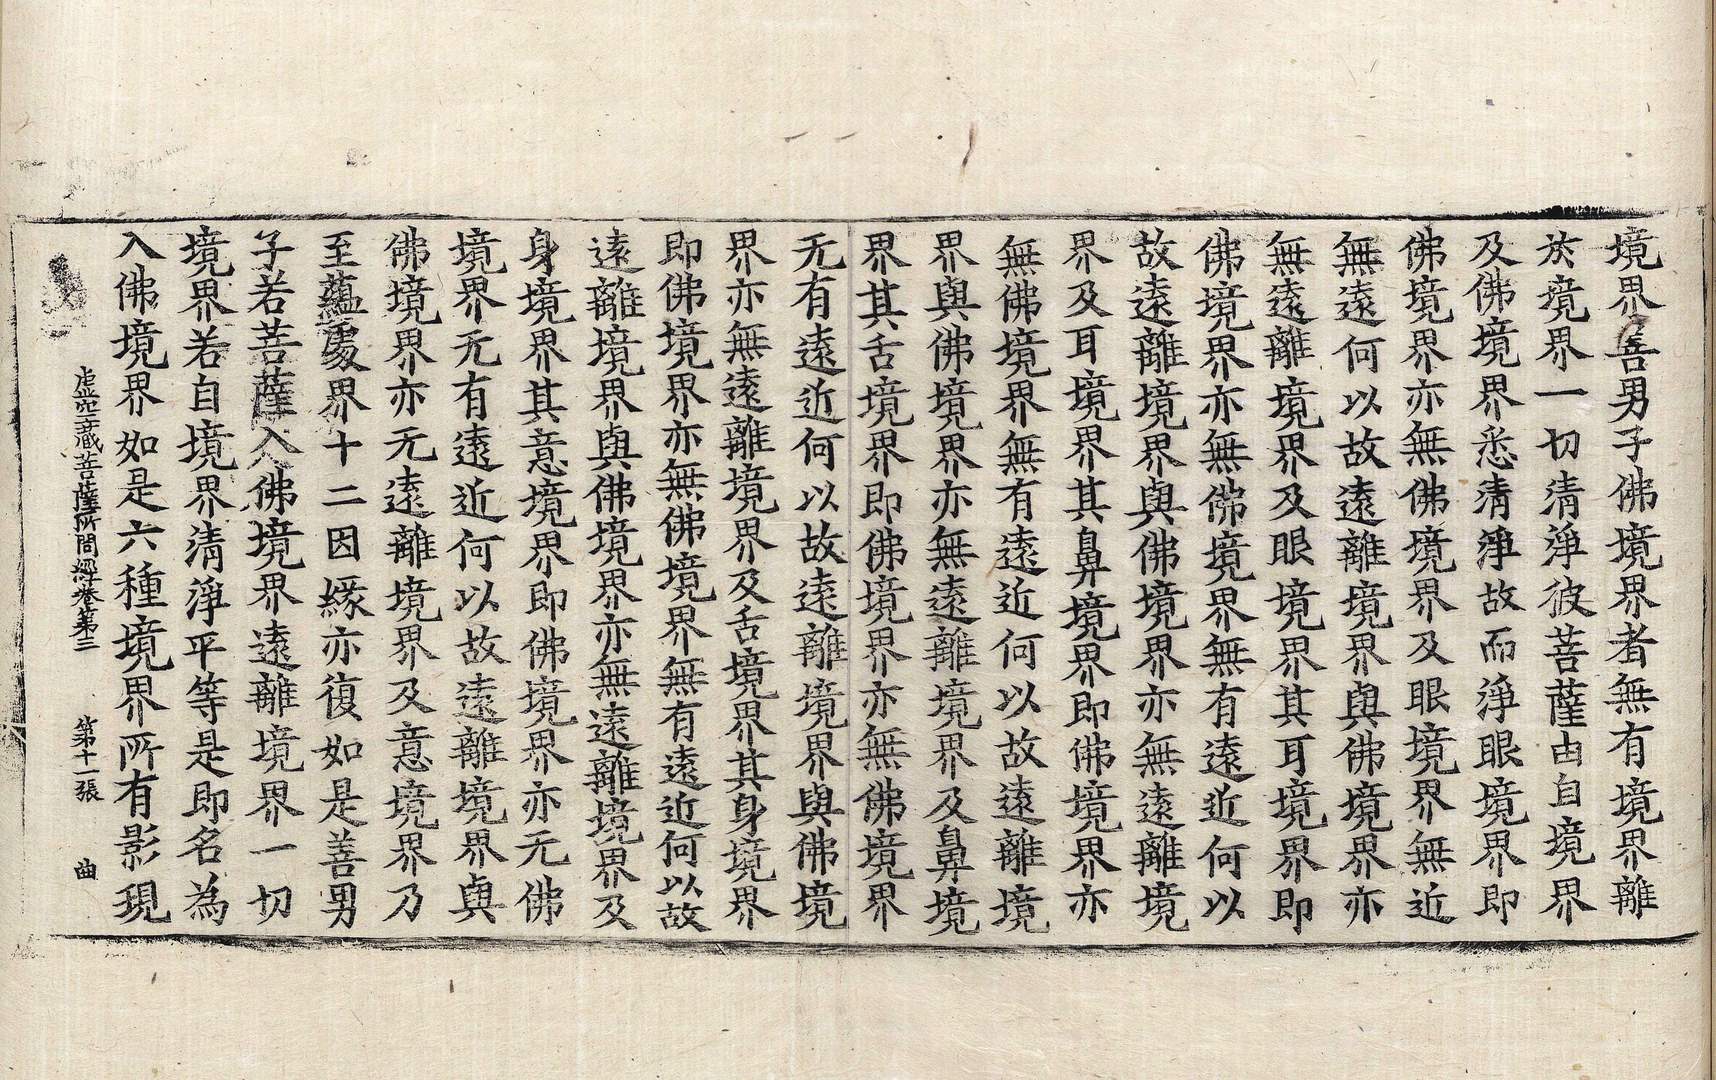 境界善男子佛境界者無有境界離
於境界一切清淨彼菩薩由自境界
及佛境界悉清淨故而淨眼境界即
佛境界亦無佛境界及眼境界無近
無遠何以故遠離境界與佛境界亦
無遠離境界及眼境界其耳境界即
佛境界亦無佛境界無有遠近何以
故遠離境界與佛境界亦無遠離境
界及耳境界其鼻境界即佛境界亦
無佛境界無有遠近何以故遠離境
界與佛境界亦無遠離境界及鼻境
界其舌境界即佛境界亦無佛境界
无有遠近何以故遠離境界與佛境
界亦無遠離境界及舌境界其身境界
即佛境界亦無佛境界無有遠近何以故
遠離境界與佛境界亦無遠離境界及
身境界其意境界即佛境界亦无佛
境界无有遠近何以故遠離境界與
佛境界亦无遠離境界及意境界乃
至蘊處界十二因緣亦復如是善男
子若菩薩入佛境界遠離境界一切
境界若自境界清淨平等是即名為
入佛境界如是六種境界所有影現
虛空藏菩薩所問經卷第三 第十一張 曲